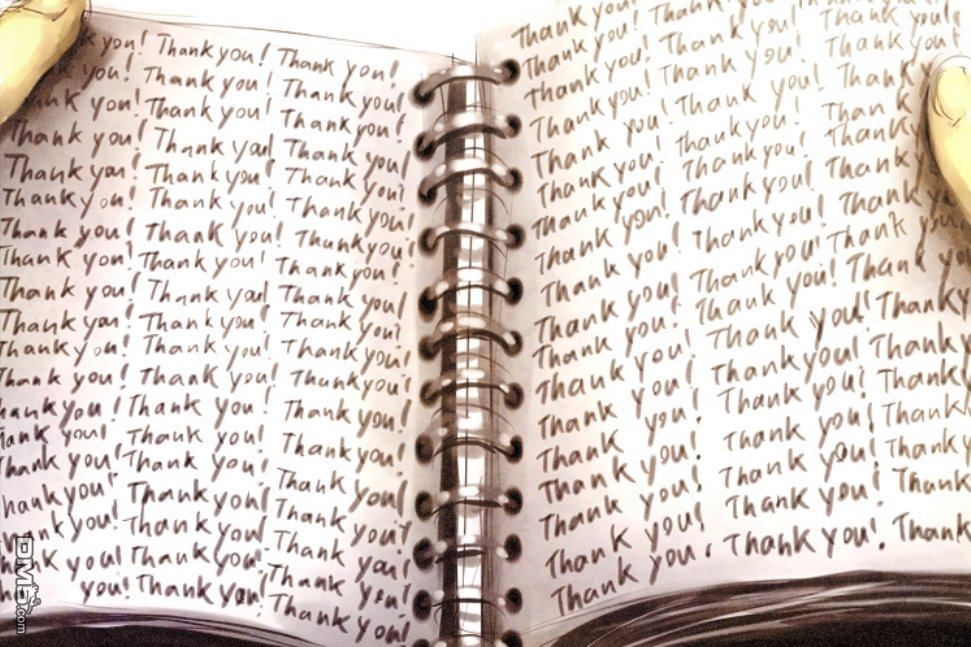 k you! Thank you! Thank you!
you! Thank you! Thank you!
ank you! Thank you! Thank you!
Thank you! Thank you! Thank you!
Thank you! Thank you! Thank you!
Thank you! Thank you! Thank you!
Thank you! Thank you! Thank you!
Thank you! Thank you! Thank you!
Thank you! Thank you! Thank you!
Thank you! Thank you! Thank you!
Thank you! Thank you! Thank you!
Thank you! Thank you! Thank you!
hank you! Thank you! Thank you!
hank you! Thank you! Thank you!
Thank you! Thank you! Thank you!
hank you! Thank you! Thank you!
hank you! Thank you! Thank you!
k you! Thank you! Thank you!
you! Thank you! Thank you!
Thank you! Thank you!
Thank you! Thank you! Thank you!
Thank you! Thank you! Thank you!
Thank you! Thank you! Thank
Thank you! Thank you! Thank
Thank you! Thank you! Thank y
Thank you! Thank you! Thank y
Thank you! Thank you! Thank y
Thank you! Thank you! Thank you
Thank you! Thank you! Thank yo
Thank you! Thank you! Thank y
Thank you! Thank you! Thank y
Thank you! Thank you! Thank y
Thank you! Thank you! Thank
Thank you! Thank you! Thank y
Thank you! Thank you! Thank
Thank you! Thank you! Thank
DMD.com